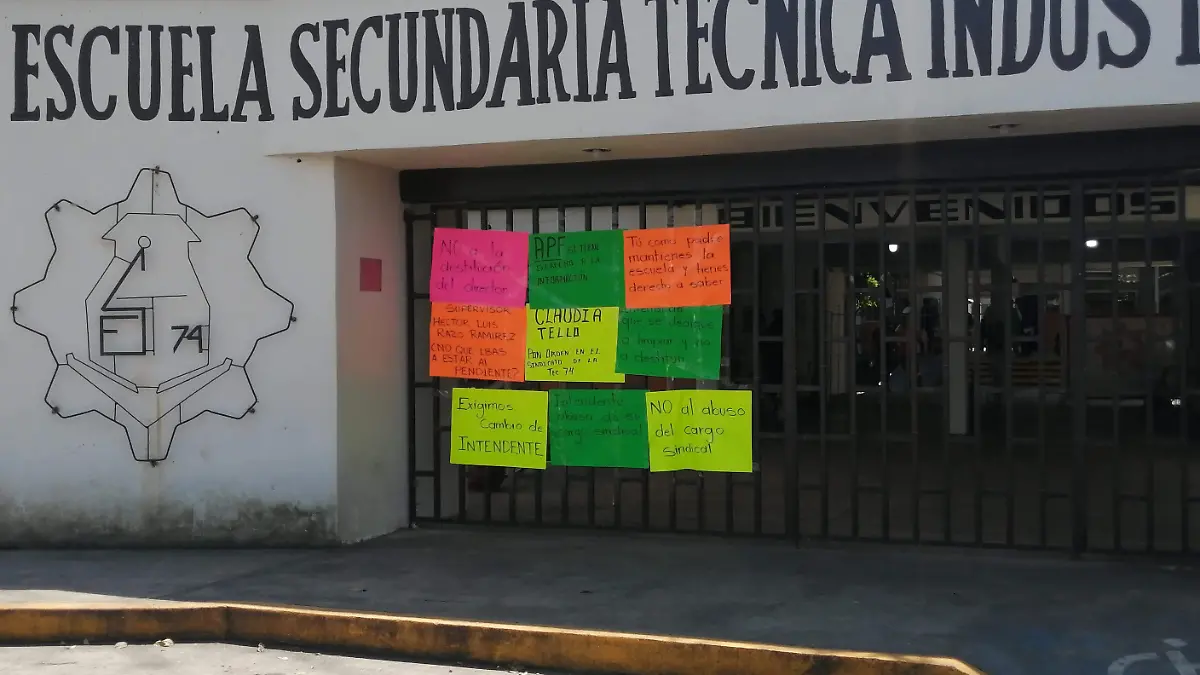 ESCUELA SECUNDARIA TECNICA INDUST
BIENVENIDOS
74
NO a la
destitución
del director
APF
DERECHO A LA
INFORMACION
Tú como padre
mantienes la
escuela y tienes
derecho a saber
SUPERVISOR
HECTOR LUIS
RAZO RAMIREZ
¿NO QUE IBAS
A ESTAR AL
PENDIENTE?
CLAUDIA
TELLO
PON ORDEN EN EL
SINDICATO DE LA
Tec 74
que se dedique
a limpiar y no
a destituir
Exigimos
Cambio de
INTENDENTE
Intendente
abusa de su
cargo sindical
NO al abuso
del cargo
sindical